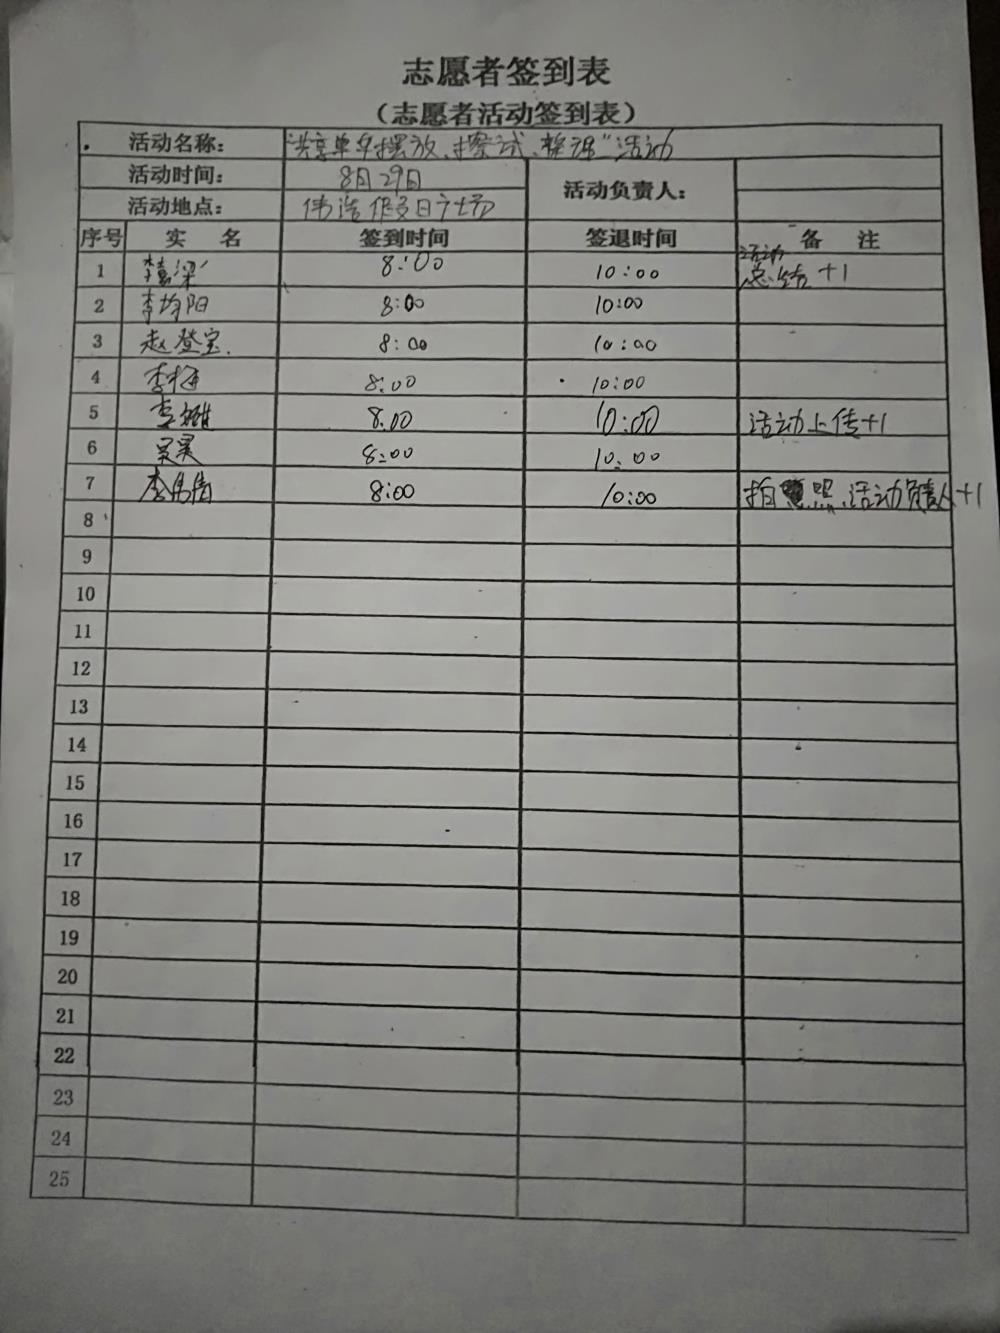 志愿者签到表
（志愿者活动签到表）
活动名称： "共享单车摆放、擦试、整理"活动
活动时间： 8月29日 活动负责人：
活动地点： 伟浩假日广场
序号 实 名 签到时间 签退时间 备 注
1 8:00 10:00 活动总结+1
2 李均阳 8:00 10:00
3 赵登宝. 8:00 10:00
4 李梅 8:00 10:00
5 李 8.00 10:00 活动上传+1
6 吴昊 8:00 10:00
7 李 8:00 10:00 拍照、活动负责人+1
8
9
10
11
12
13
14
15
16
17
18
19
20
21
22
23
24
25